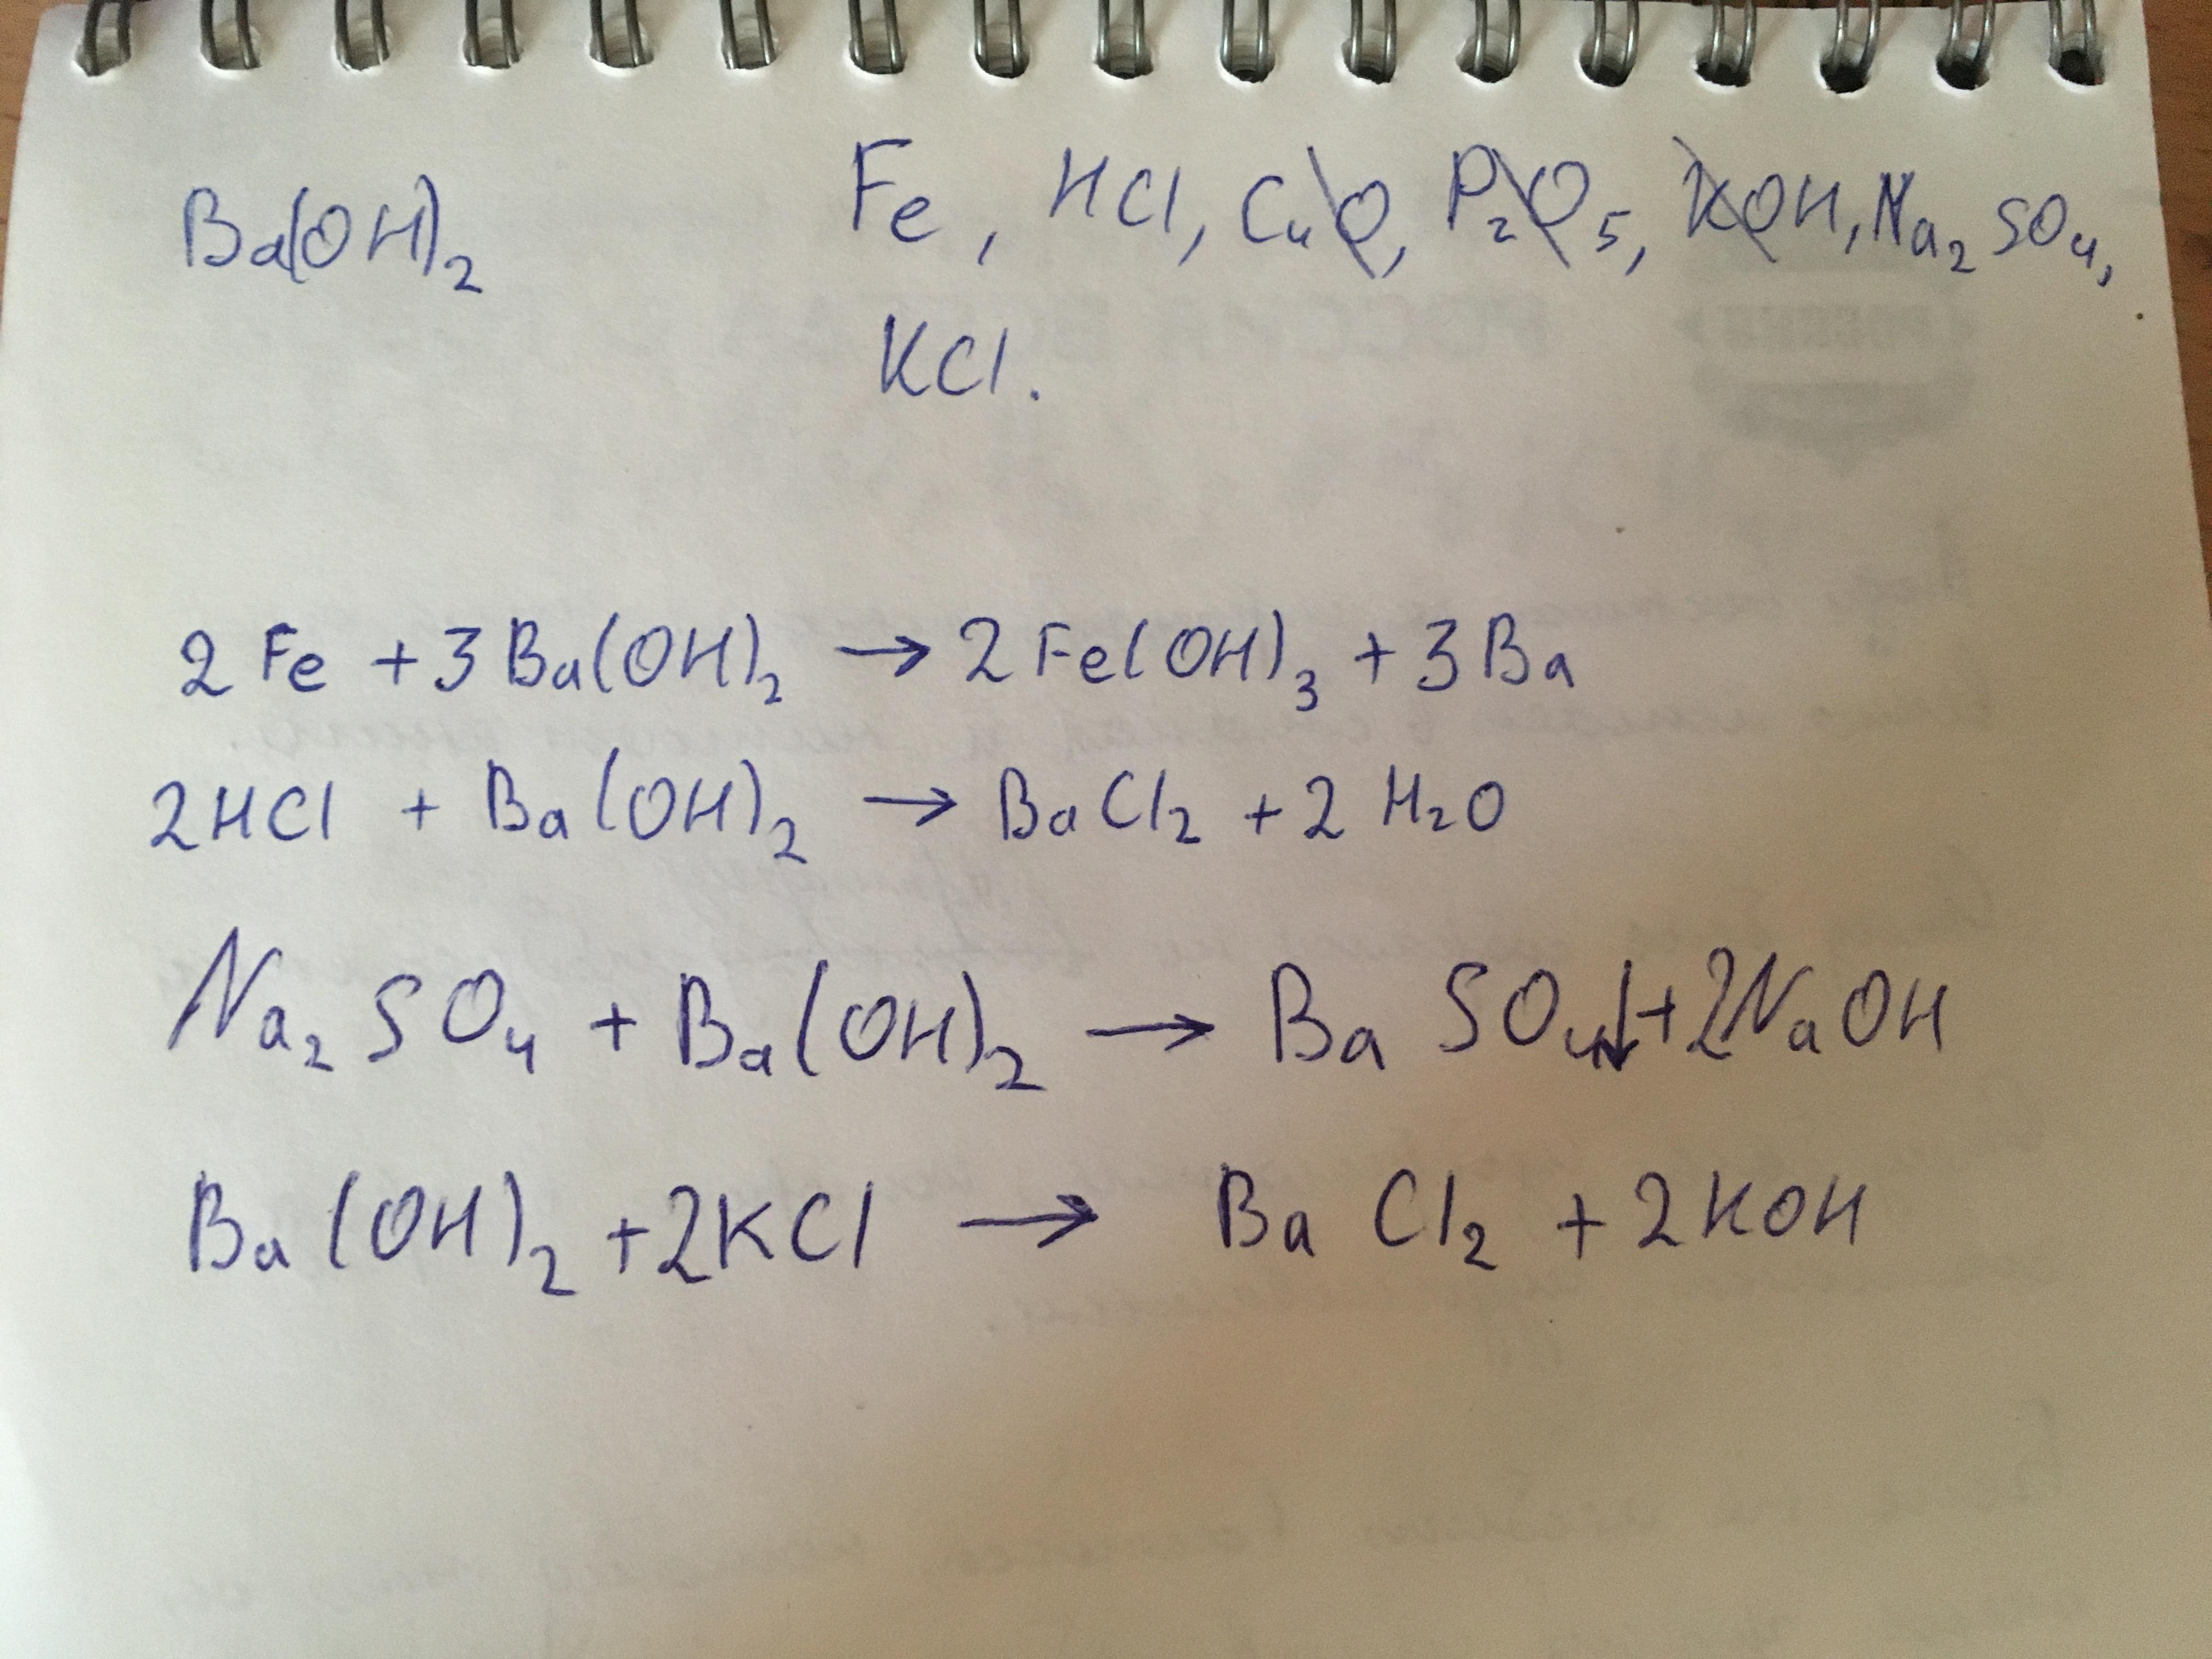 Ba(OH)₂ Fe, HCl, CuO, P₂O₅, KOH, Na₂SO₄,
KCl.
2Fe + 3Ba(OH)₂ → 2Fe(OH)₃ + 3Ba
2HCl + Ba(OH)₂ → BaCl₂ + 2H₂O
Na₂SO₄ + Ba(OH)₂ → BaSO₄↓ + 2NaOH
Ba(OH)₂ + 2KCl → BaCl₂ + 2KOH